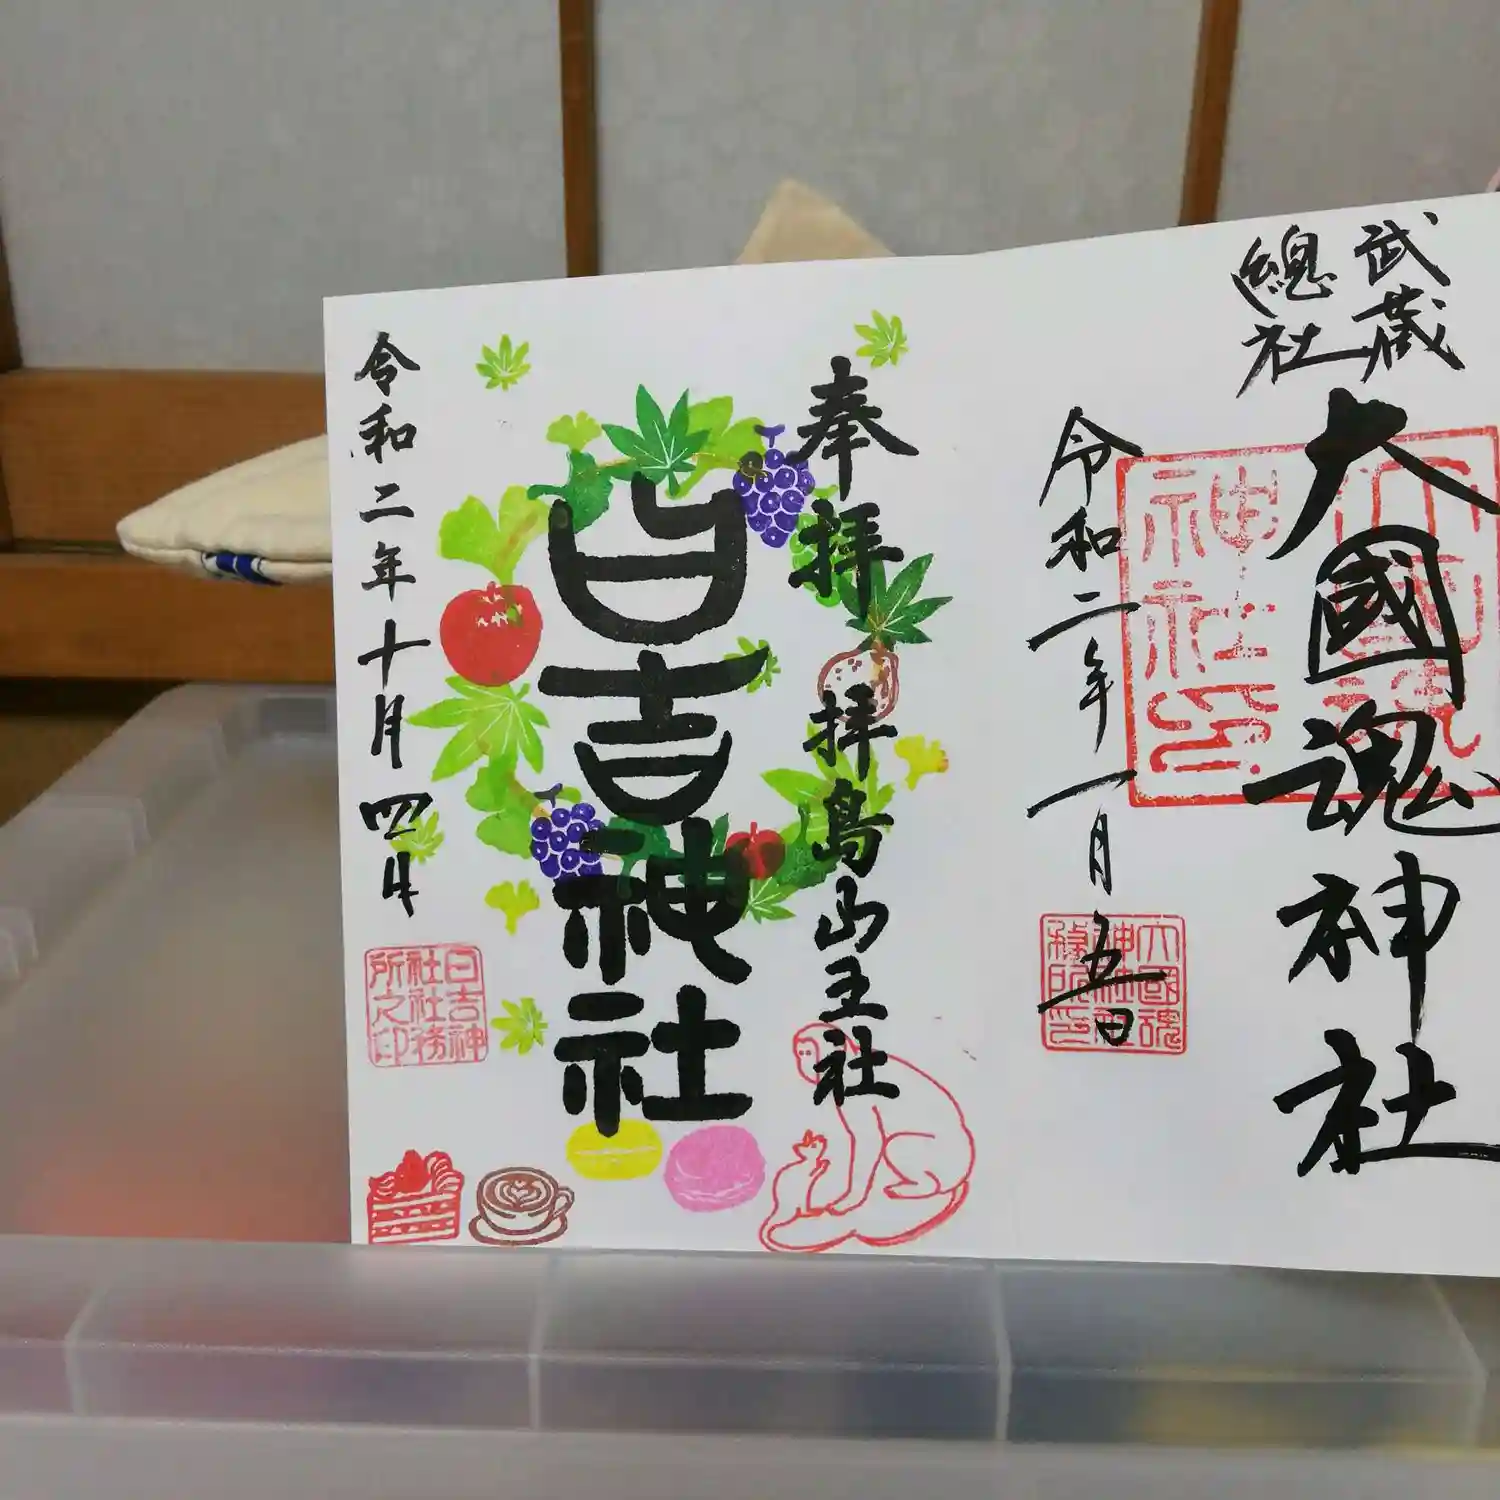 武蔵
總社
大國魂神社
令和二年一月五日
大國魂
神社印
奉拝 拝島山王社
日吉神社
令和二年十月四日
日吉神
社社務
所之印